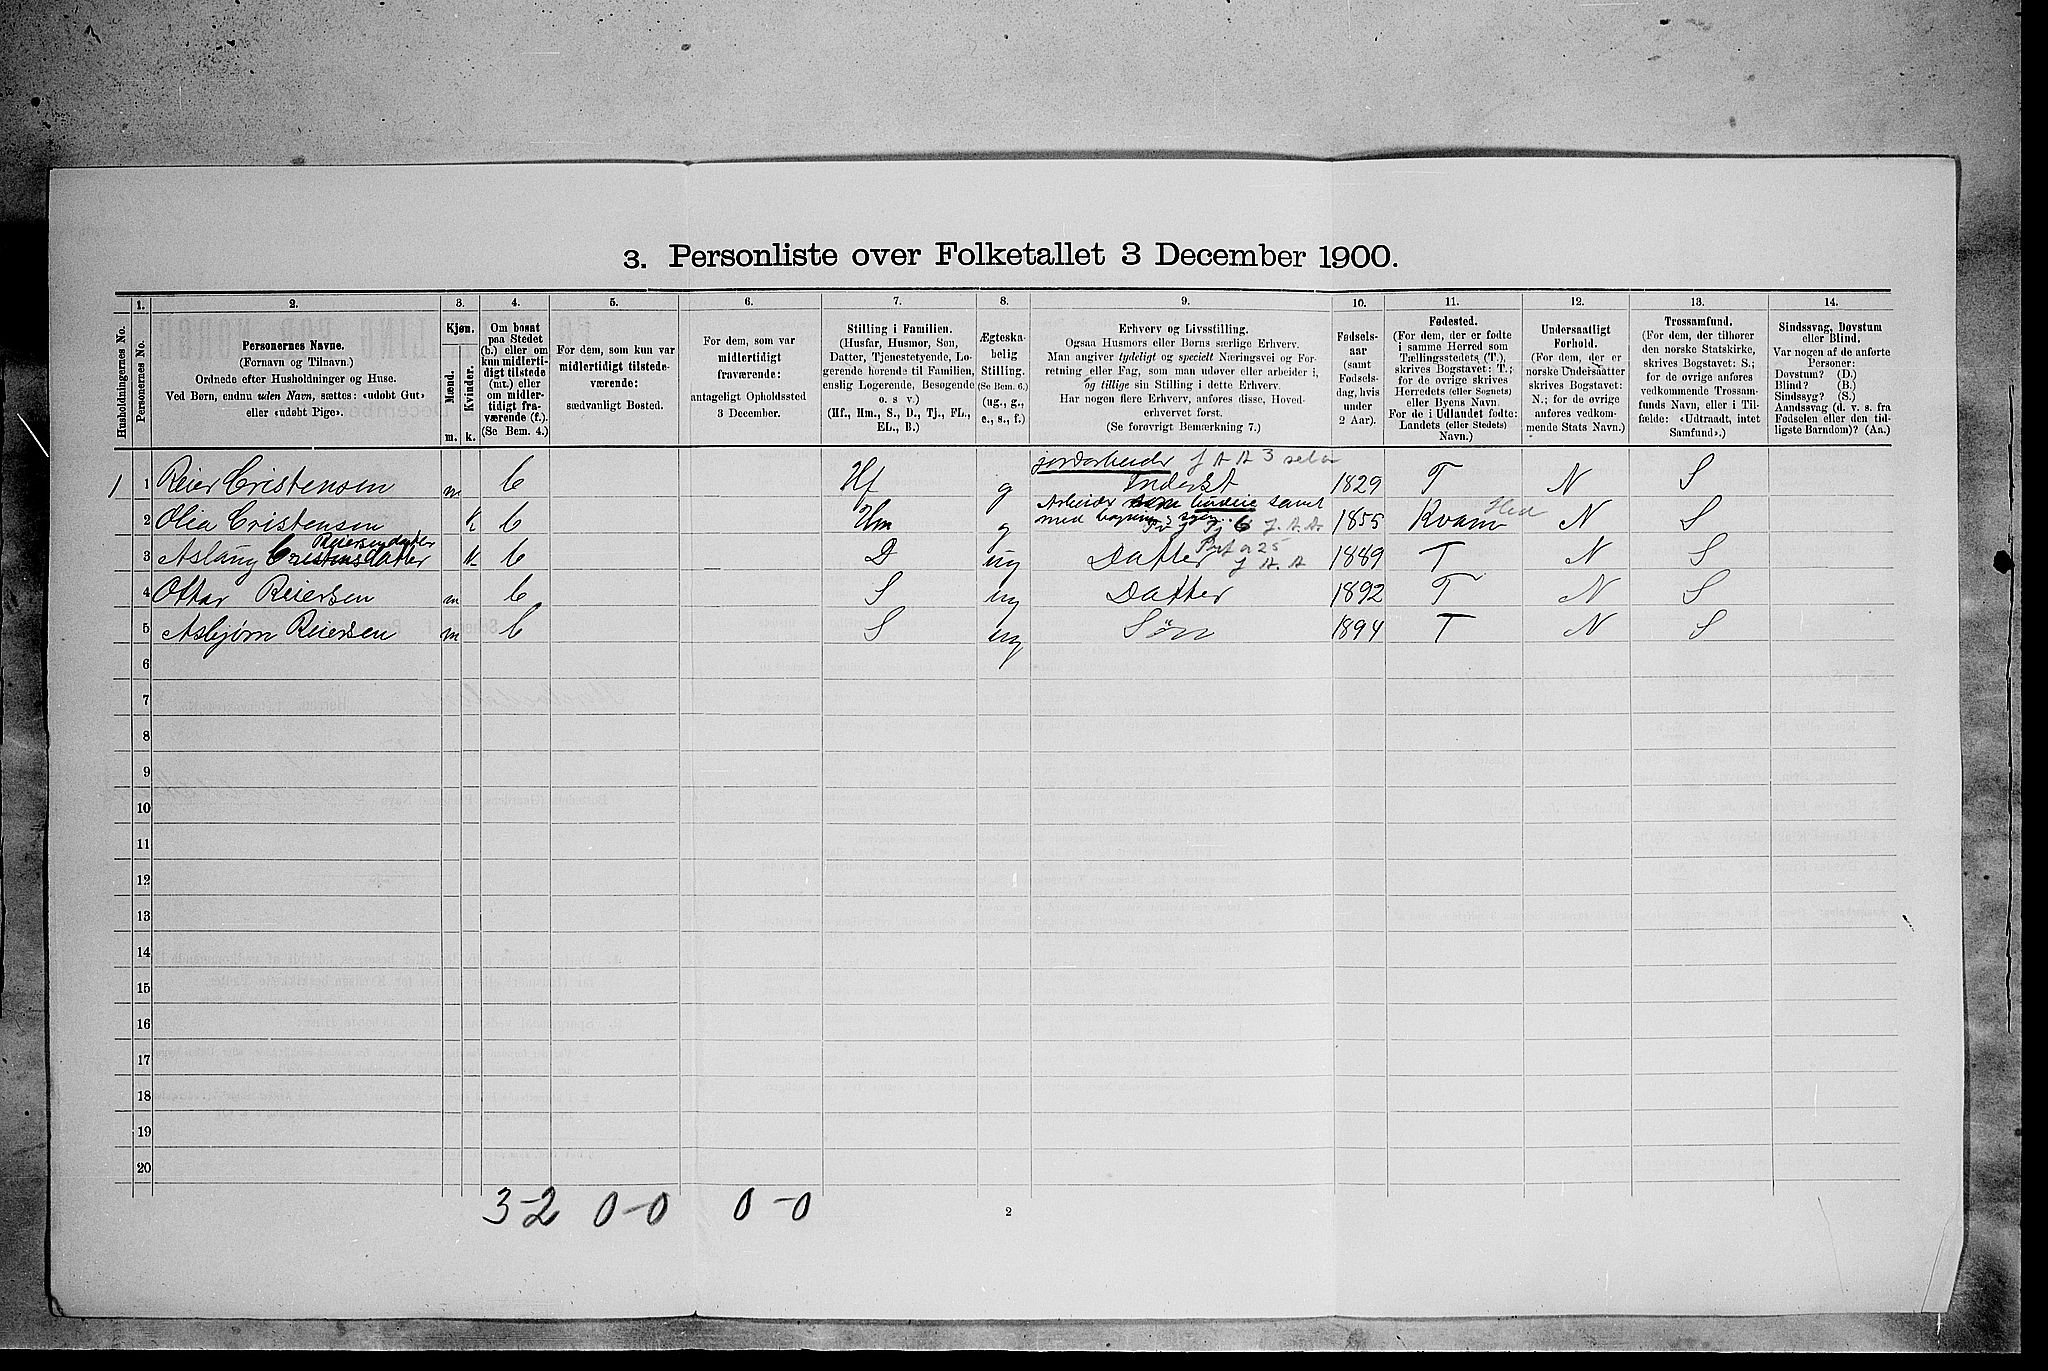 3. Personliste over Folketallet 3 December 1900.
1. 2. 3. 4. 5. 6. 7. 8. 9. 10. 11. 12. 13. 14.
Husholdningernes No.
Personernes No.
Personernes Navne.
(Fornavn og Tilnavn.)
Ordnede efter Husholdninger og Huse.
Ved Børn, endnu uden Navn, sættes: «udøbt Gut»
eller «udøbt Pige».
Kjøn.
Mænd.
Kvinder.
m. k.
Om bosat
paa Stedet
(b.) eller om
kun midlerti-
digt tilstede
(mt.) eller
om midler-
tidigt fra-
værende (f.).
(Se Bem. 4.)
For dem, som kun var
midlertidigt tilstede-
værende:
sædvanligt Bosted.
For dem, som var
midlertidigt
fraværende:
antageligt Opholdssted
3 December.
Stilling i Familien.
(Husfar, Husmor, Søn,
Datter, Tjenestetyende, Lo-
gerende hørende til Familien,
enslig Logerende, Besøgende
o. s v.)
(Hf., Hm., S., D., Tj., FL.,
EL., B.)
Ægteska-
belig
Stilling.
(Se Bem. 6.)
(ug., g.,
e., s., f.)
Erhverv og Livsstilling.
Ogsaa Husmors eller Børns særlige Erhverv.
Man angiver tydeligt og specielt Næringsvei og For-
retning eller Fag, som man udøver eller arbeider i,
og tillige sin Stilling i dette Erhverv.
Har nogen flere Erhverv, anføres disse, Hoved-
erhvervet først.
(Se forøvrigt Bemærkning 7.)
Fødsels-
aar
(samt
Fødsels-
dag, hvis
under
2 Aar).
Fødested.
(For dem, der er fødte
i samme Herred som
Tællingsstedets (T.),
skrives Bogstavet: T.;
for de øvrige skrives
Herredets (eller Sognets)
eller Byens Navn.
For de i Udlandet fødte:
Landets (eller Stedets)
Navn.)
Undersaatligt
Forhold.
(For dem, der er
norske Undersaatter
skrives Bogstavet:
N.; for de øvrige
anføres vedkom-
mende Stats Navn.)
Trossamfund.
(For dem, der tilhører
den norske Statskirke,
skrives Bogstavet: S.;
for de øvrige anføres
vedkommende Trossam-
funds Navn, eller i Til-
fælde: «Udtraadt, intet
Samfund».)
Sindssvag, Døvstum
eller Blind.
Var nogen af de anførte
Personer:
Døvstum? (D.)
Blind? (B.)
Sindssyg? (S.)
Aandssvag (d. v. s. fra
Fødselen eller den tid-
ligste Barndom)? (Aa.)
jordarbeider J A A 3
1 1 Reier Cristensen m b Hf g Inderst 1829 T N S
Arbeider samt
2 Olea Cristensen K b Hm g med J. A. A. 1855 Kvam Hed N S
Reiersendatter
3 Aslaug Cristensdatter K b D ug Datter J A. A 1889 T N S
4 Ottar Reiersen m b S ug Datter 1892 T N S
5 Asbjørn Reiersen m b S ug Søn 1894 T N S
6
7
8
9
10
11
12
13
14
15
16
17
18
19
20
3-2 0-0 0-0
2